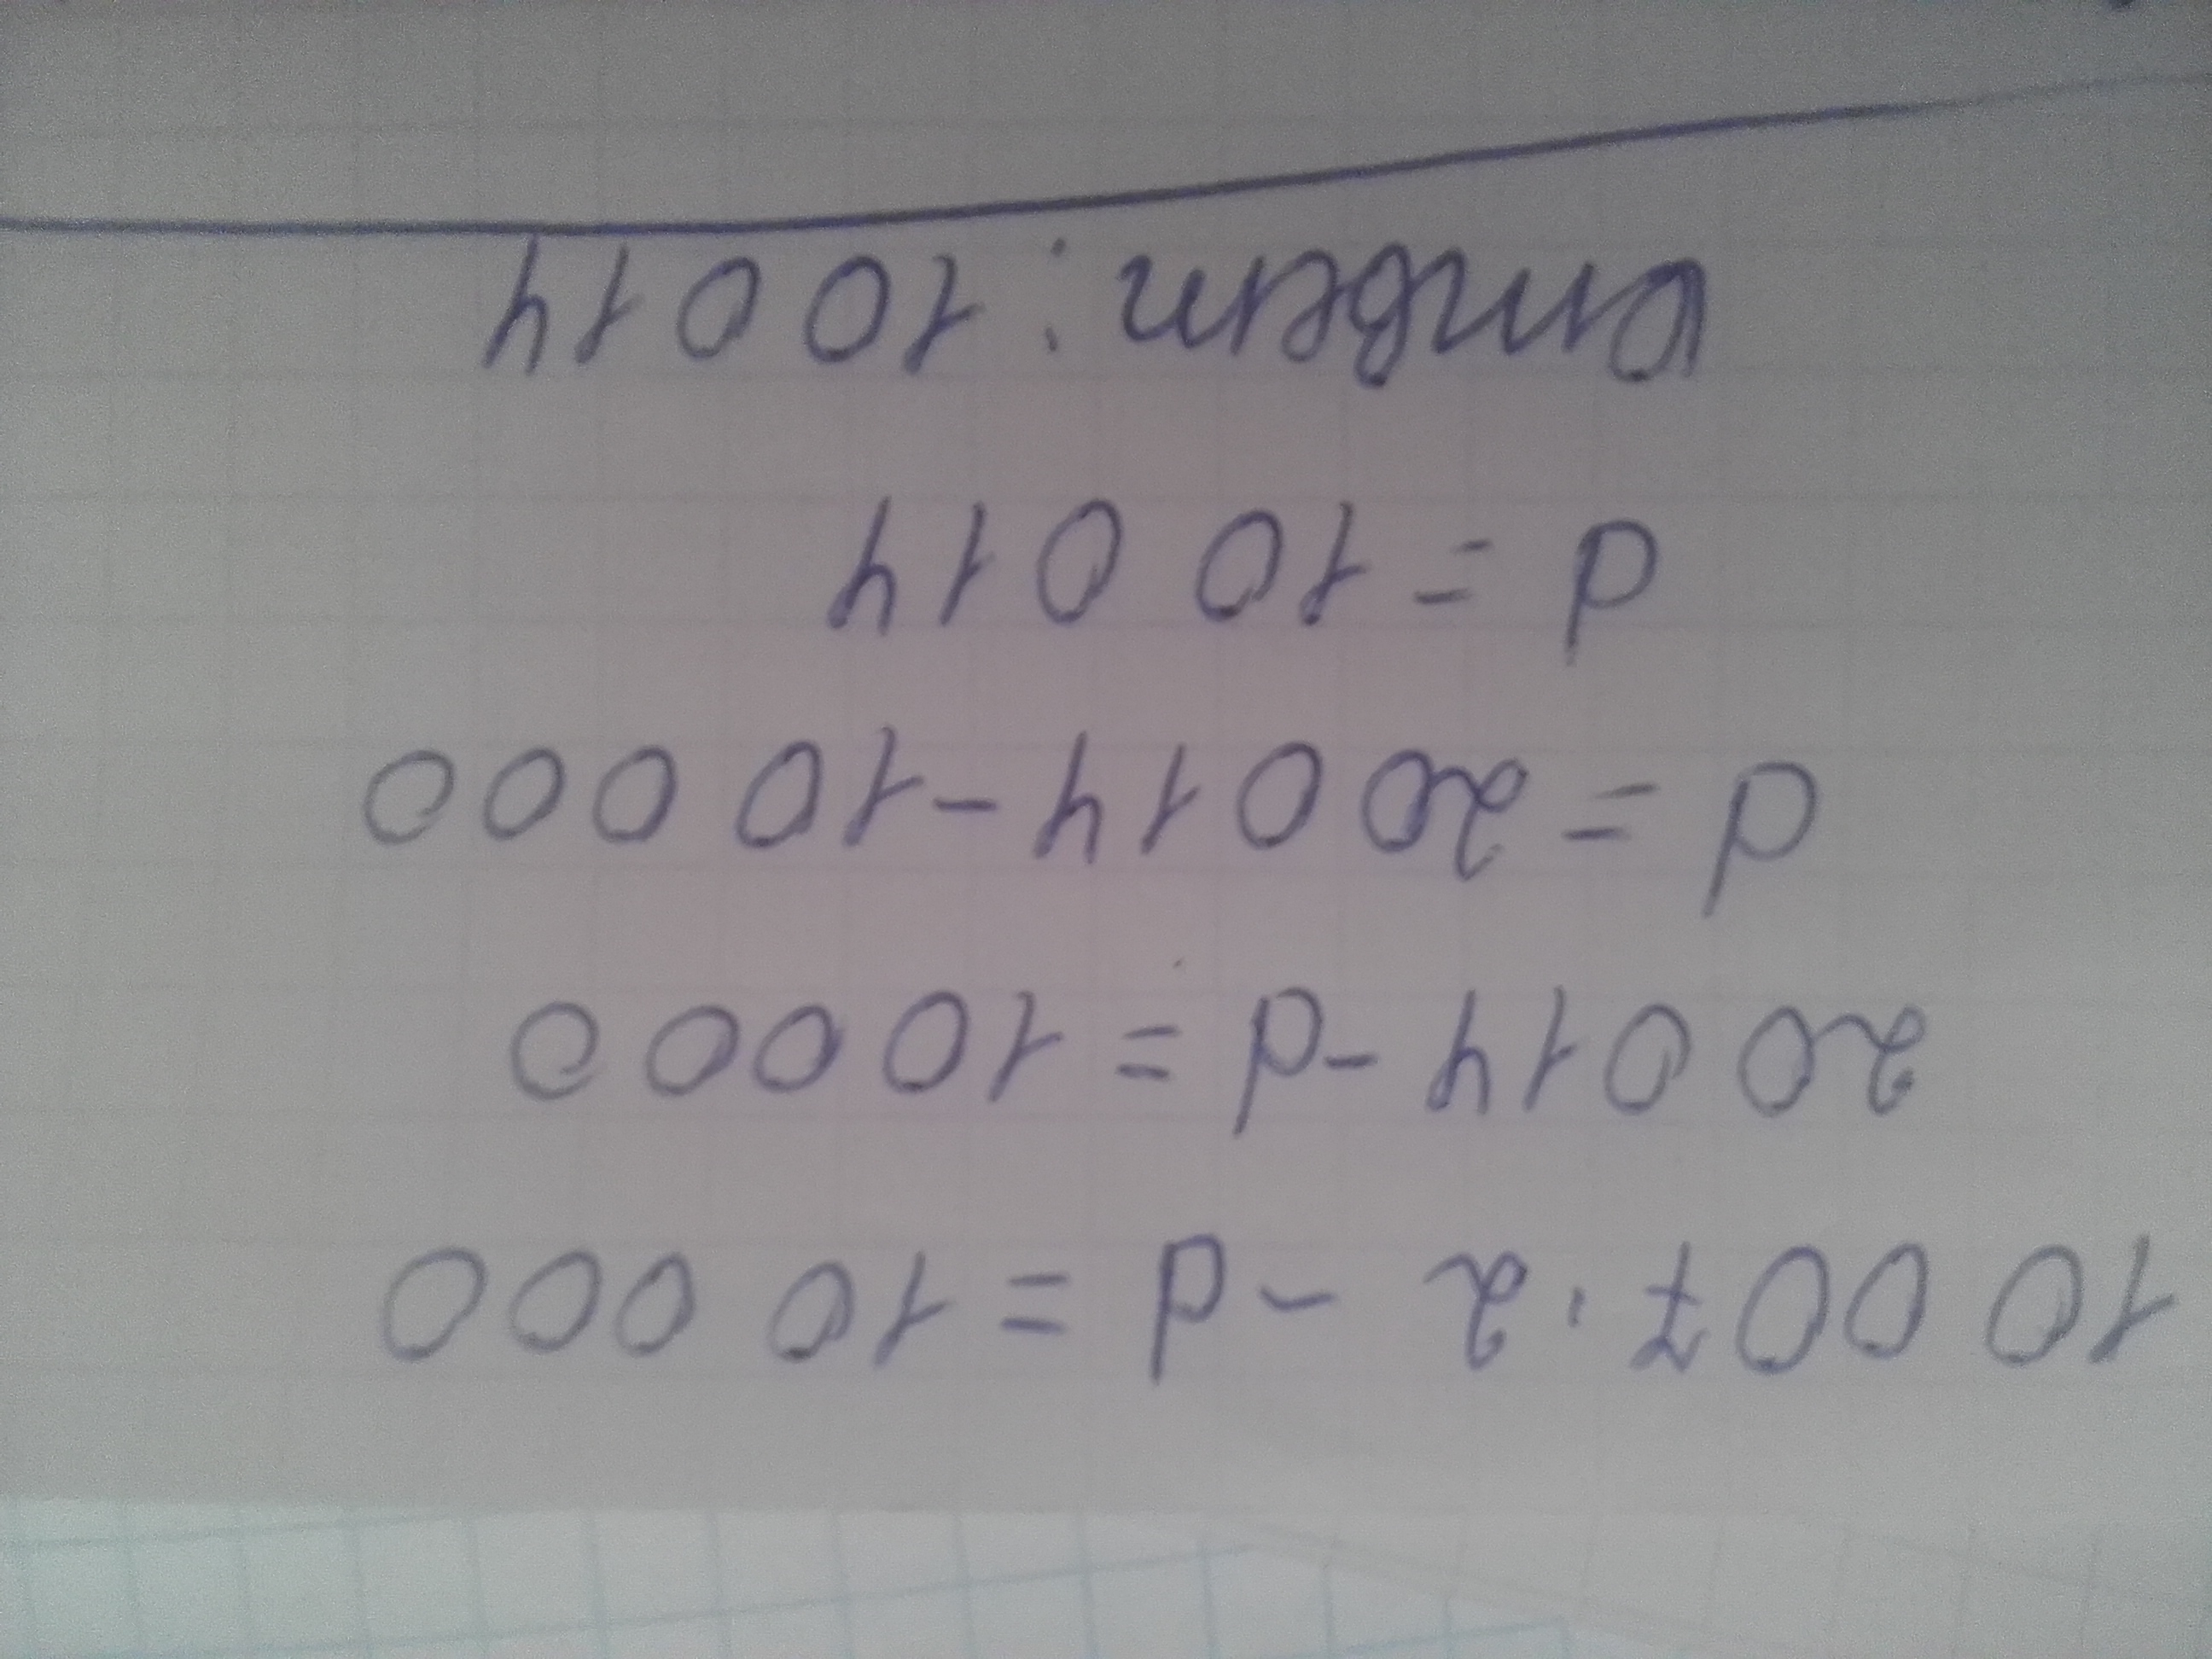 10 007 · 2 - d = 10 000
20 014 - d = 10000
d = 20 014 - 10 000
d = 10 014
Ответ: 10 014